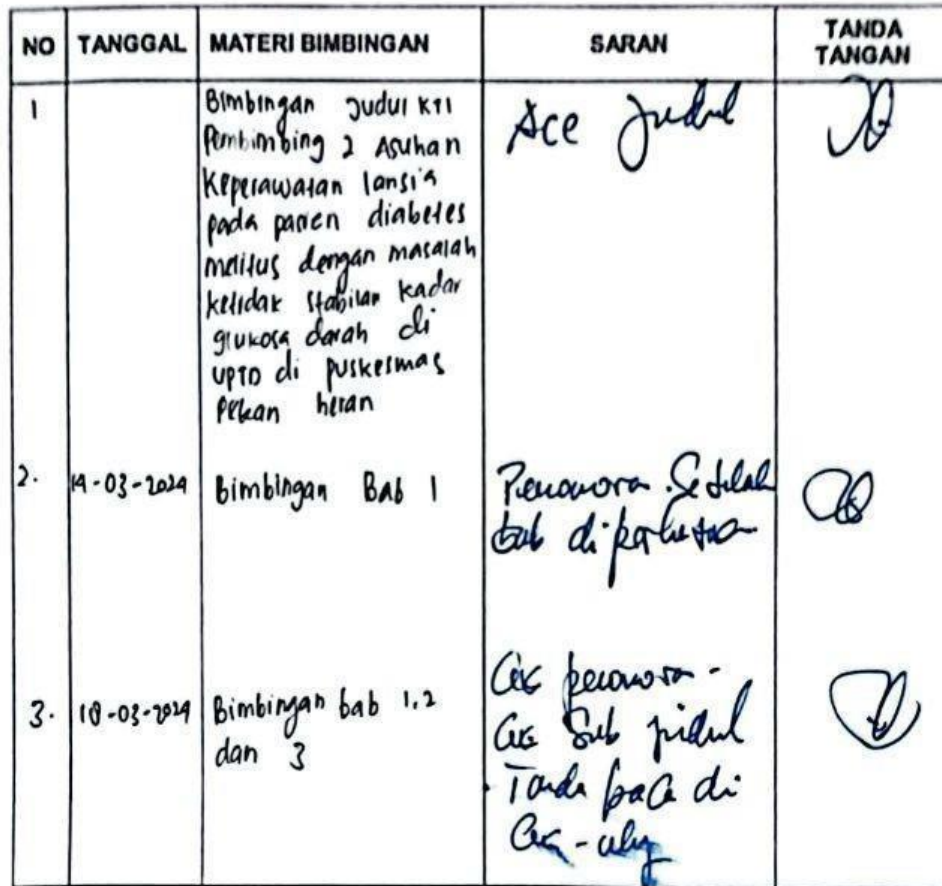 NO TANGGAL MATERI BIMBINGAN SARAN TANDA TANGAN
1 Bimbingan Judul KTI Acc Judul
Pembimbing 2 Asuhan
Keperawatan lansia
pada pasien diabetes
melitus dengan masalah
ketidak stabilan kadar
glukosa darah di
UPTD di puskesmas
Pekan heran
2. 14-03-2024 Bimbingan Bab 1 Penomoran Setelah
bab diperhatikan
3. 18-03-2024 Bimbingan bab 1,2
dan 3
Cek penomoran -
Cek Sub judul
Tanda baca di
Cek -